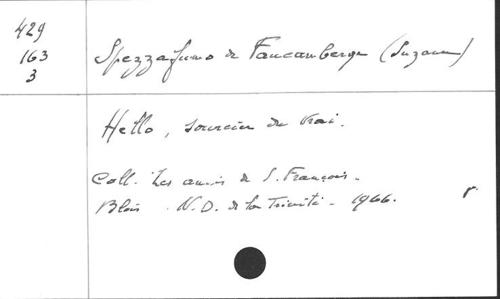 429
163
3
Spezzafumo de Faucamberge (Suzanne)
Hello, sourcier du vrai.
Coll. Les amis de S. François.
Blois. N. D. de la Trinité. 1966.
r